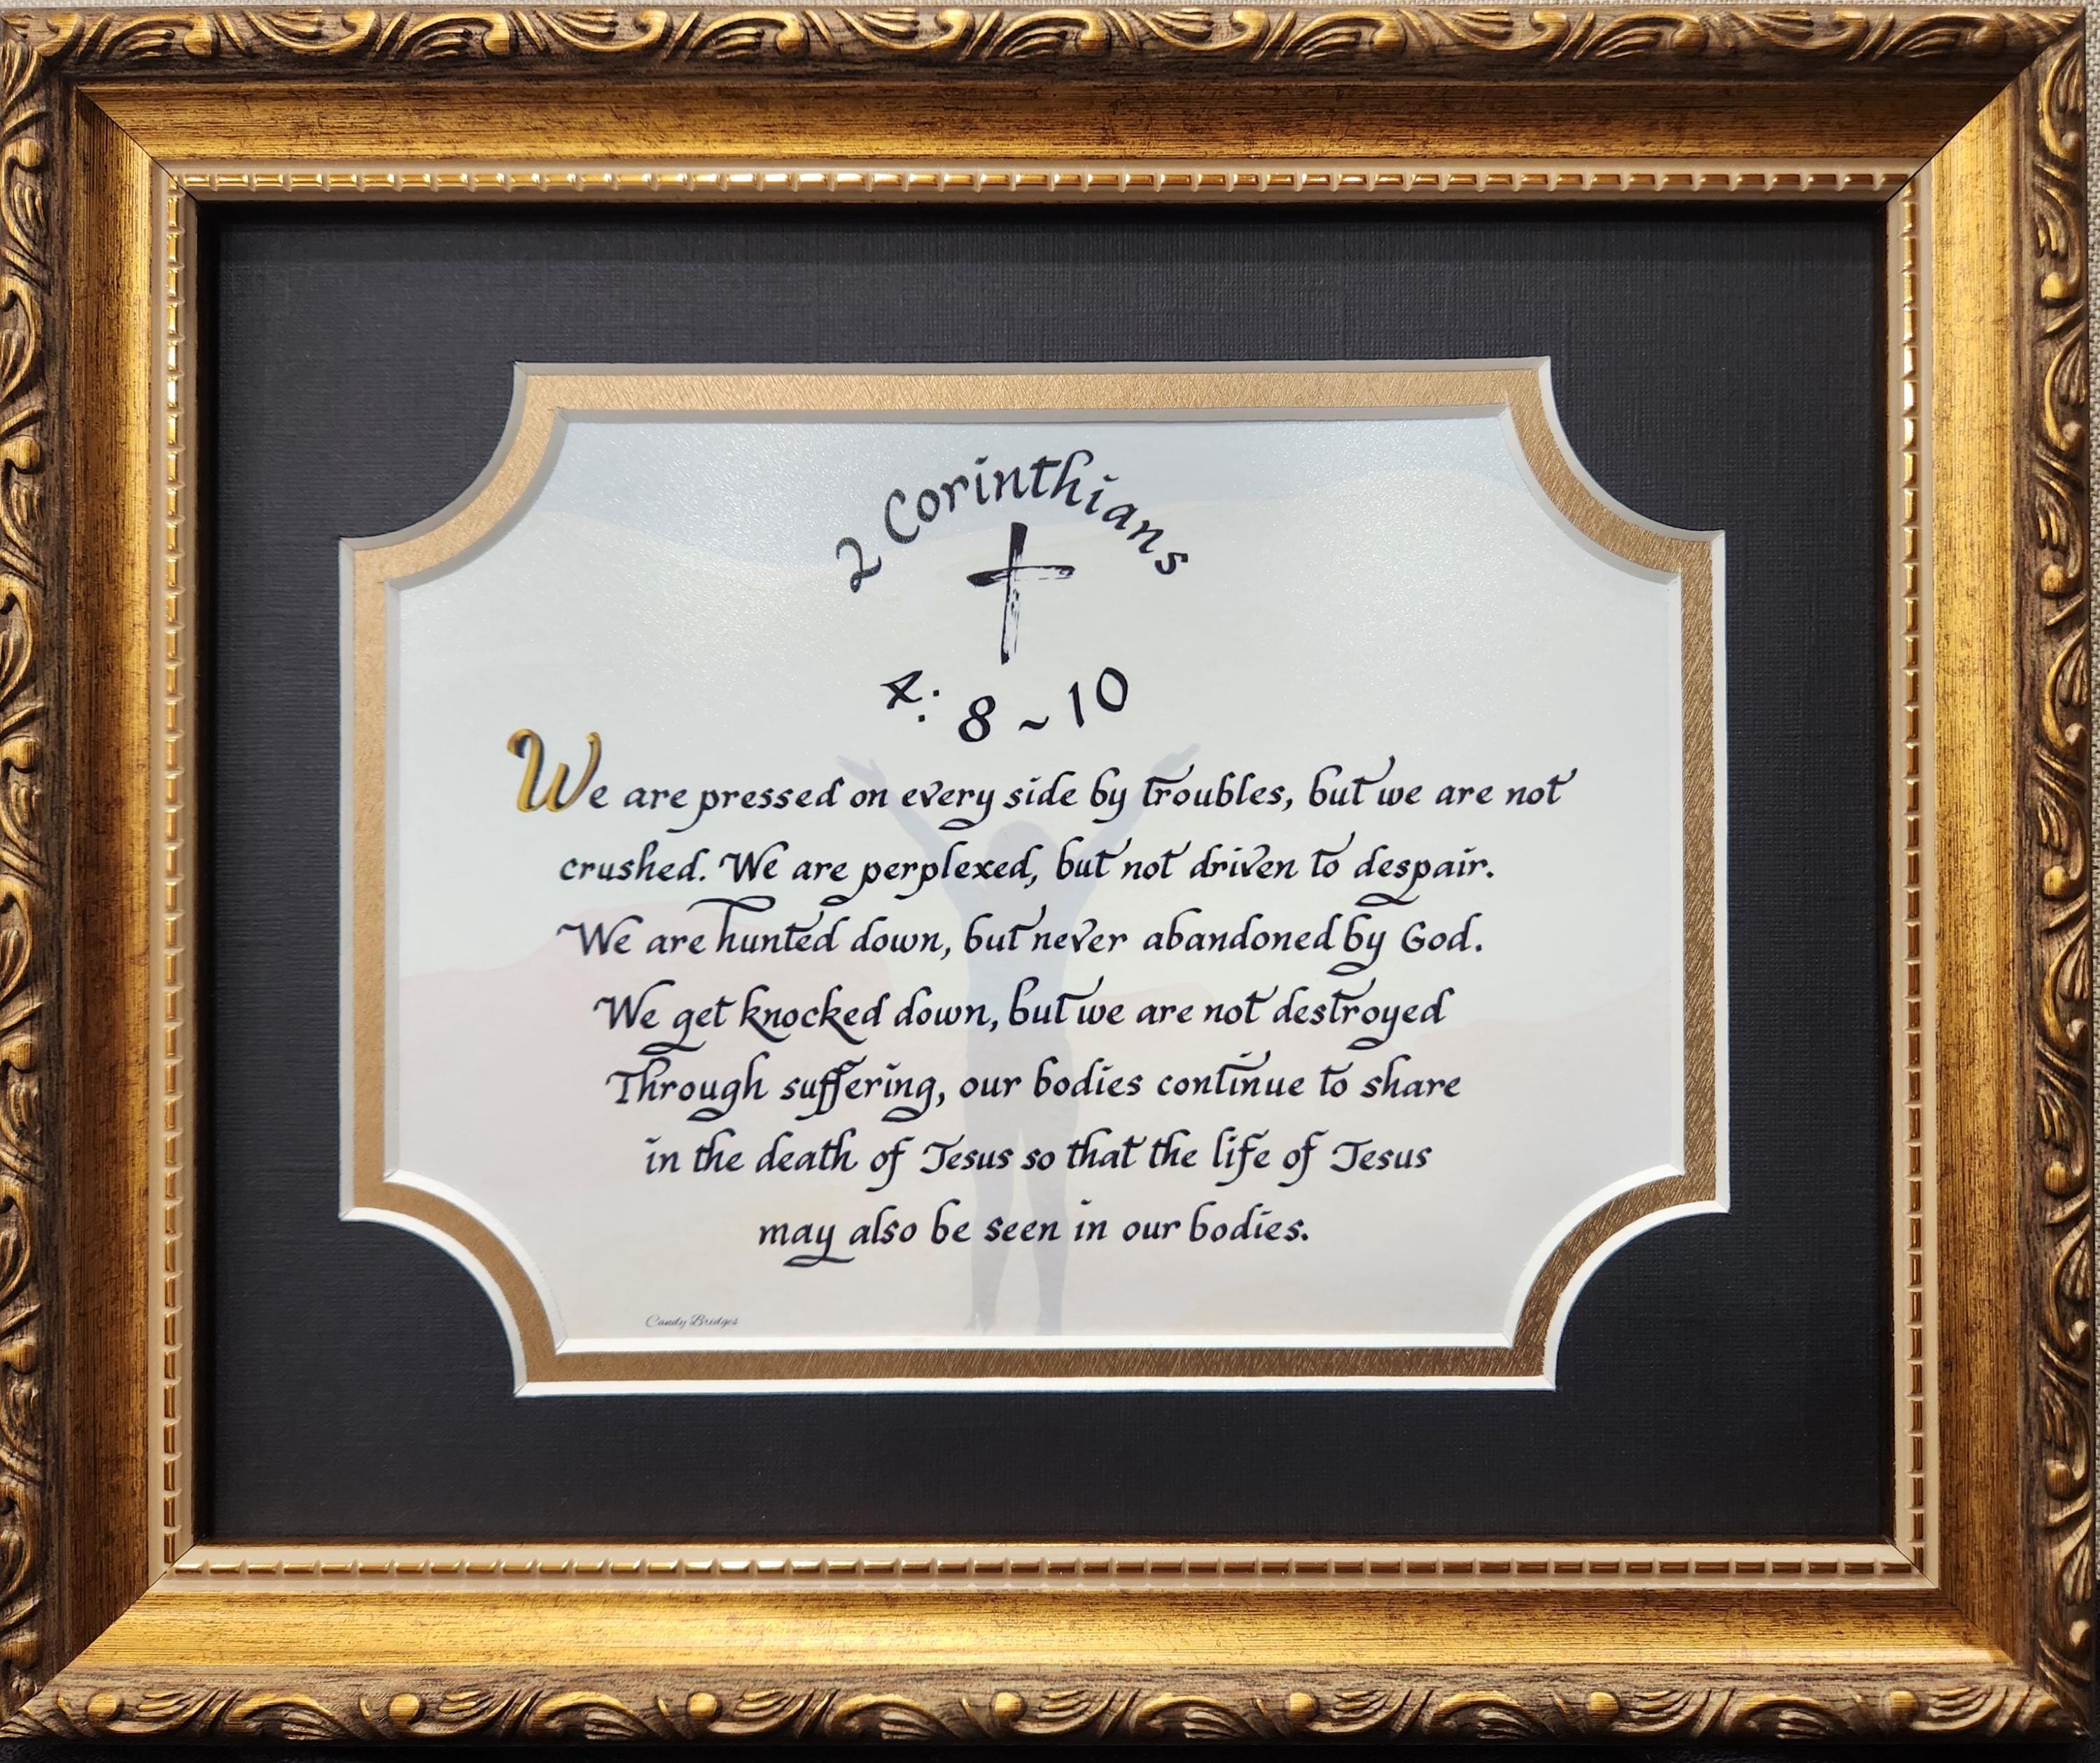 2 Corinthians
4: 8 ~ 10
We are pressed on every side by troubles, but we are not
crushed. We are perplexed, but not driven to despair.
We are hunted down, but never abandoned by God.
We get knocked down, but we are not destroyed
Through suffering, our bodies continue to share
in the death of Jesus so that the life of Jesus
may also be seen in our bodies.
Candy Bridges